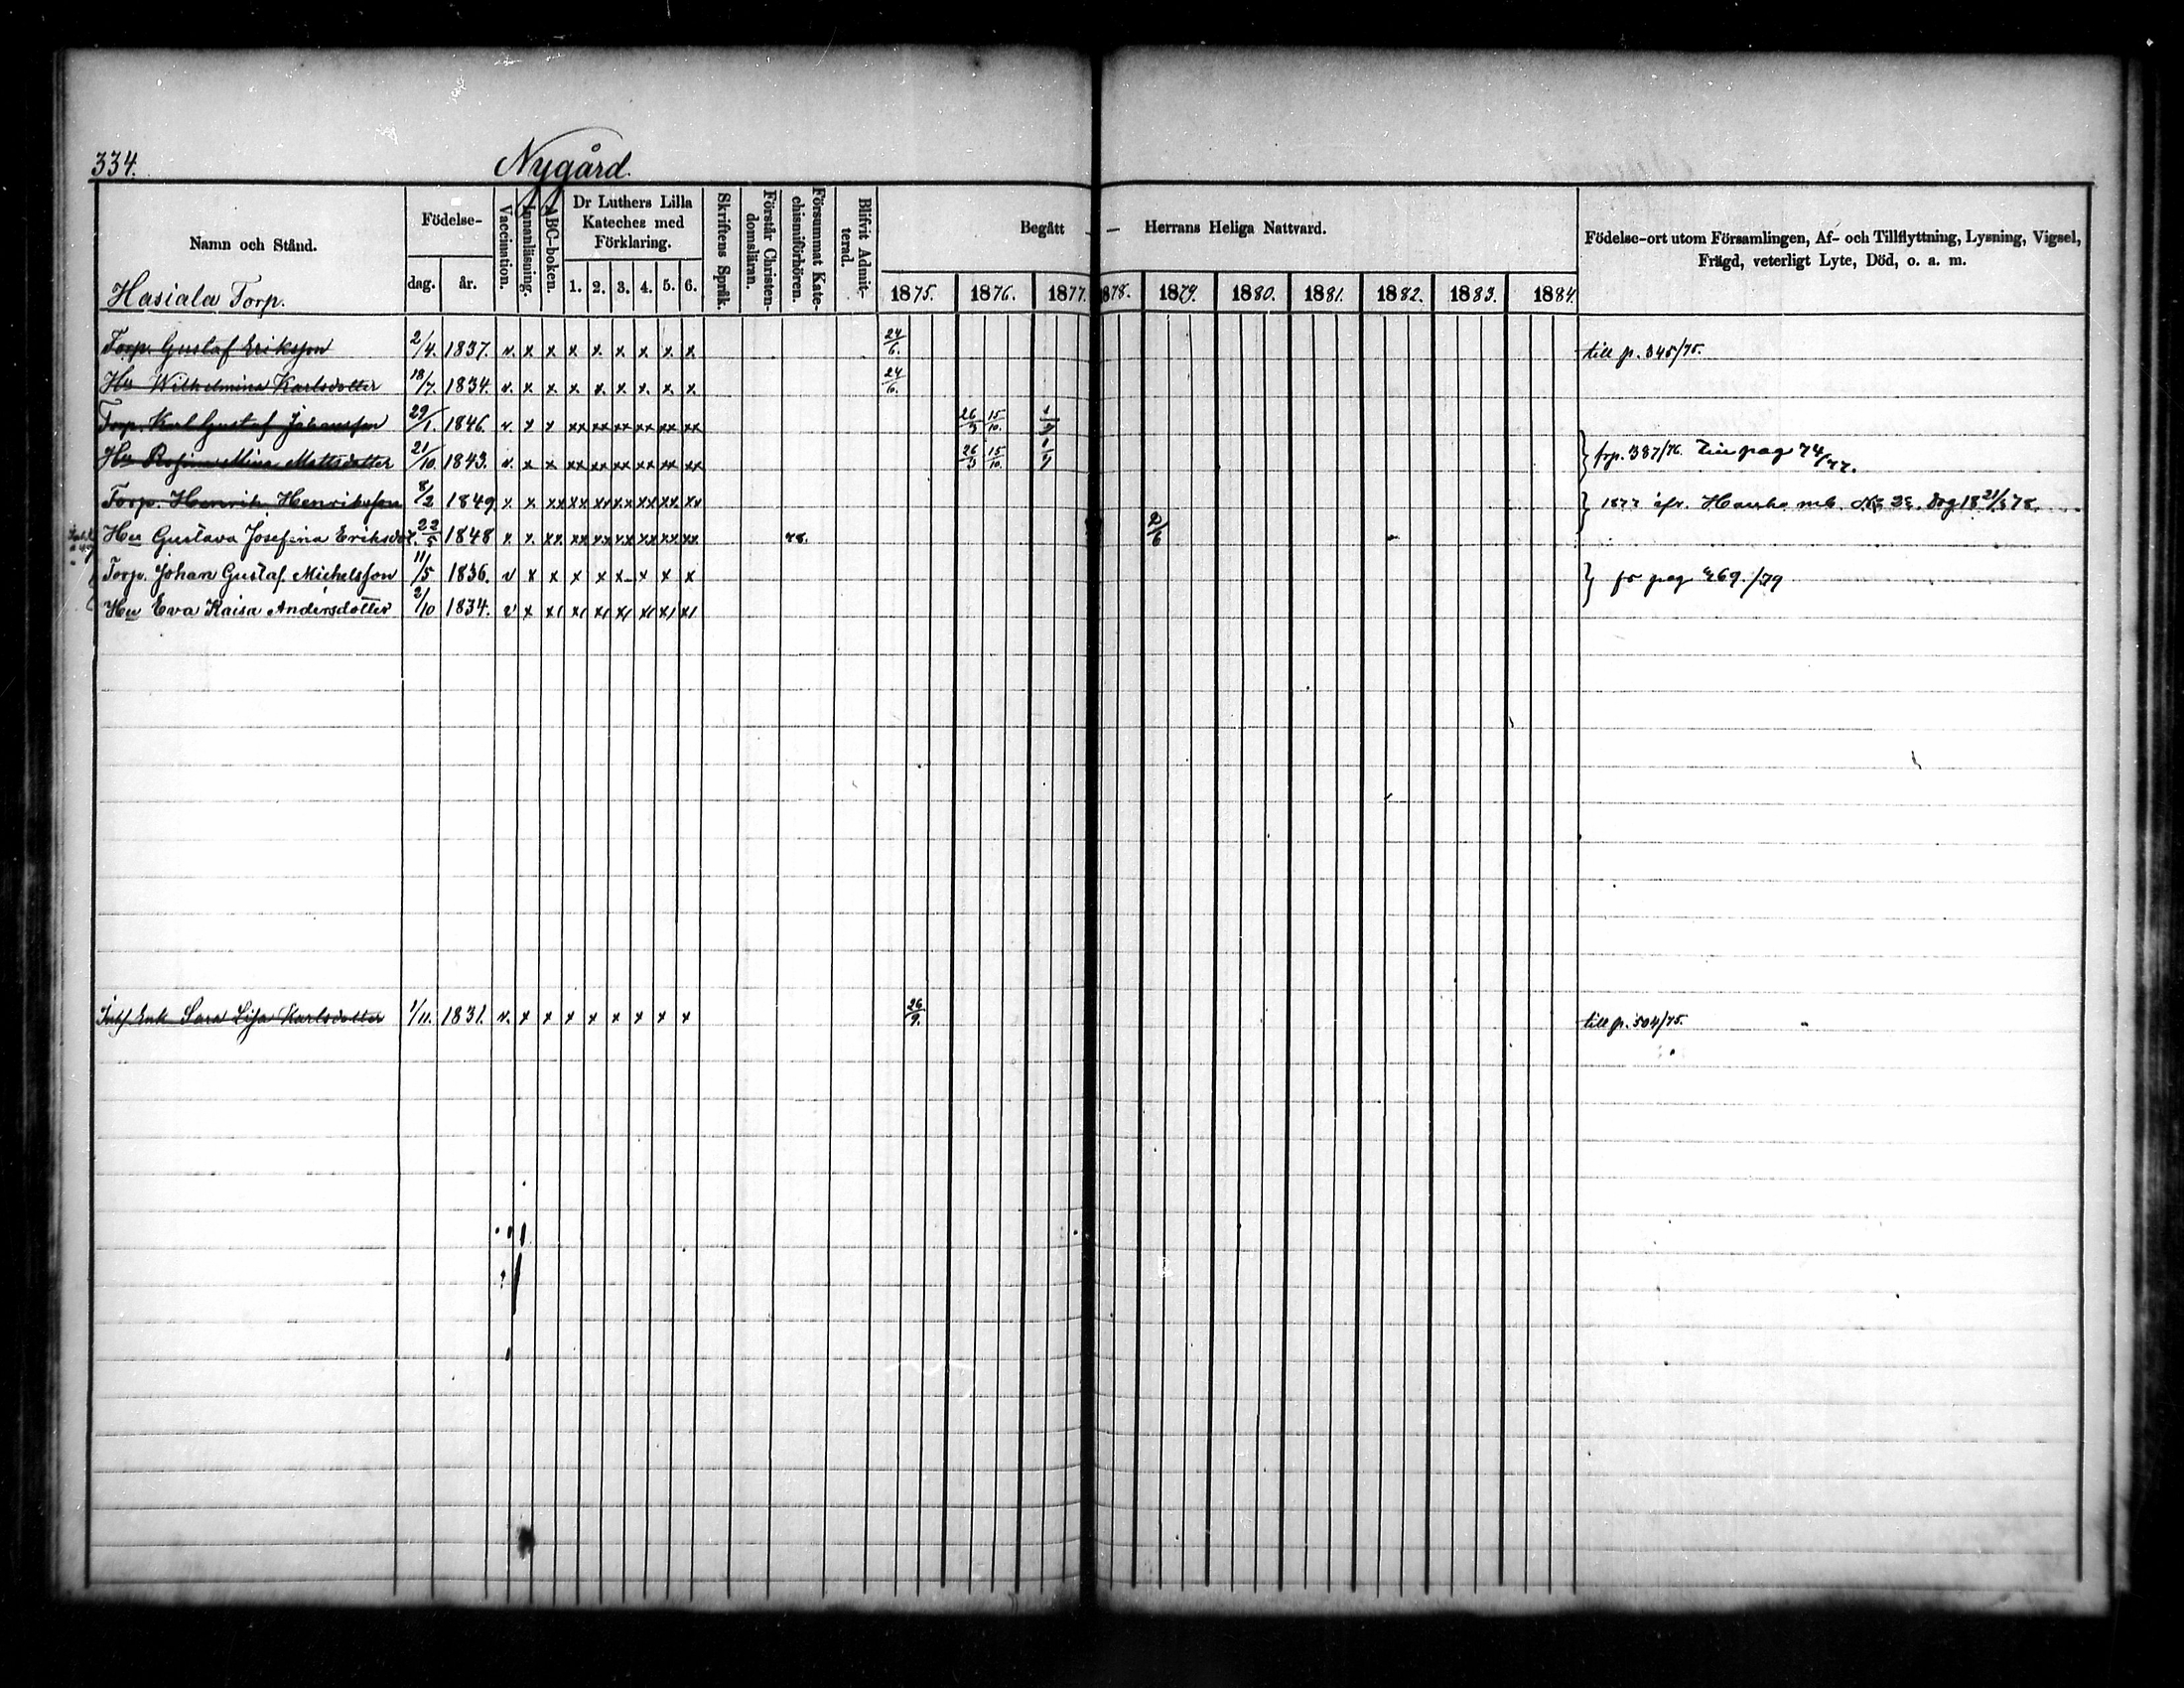 334.
Nygård.
Namn och Stånd.
Hasiala Torp.
Födelse-
dag. år.
Vaccination.
Innanläsning.
ABC-boken.
Dr Luthers Lilla
Kateches med
Förklaring.
1. 2. 3. 4. 5. 6.
Skriftens Språk.
Förstår Christen-
domsläran.
Försummat Kate-
chismiförhören.
Blifvit Admit-
terad.
Begått — Herrans Heliga Nattvard.
1875. 1876. 1877. 878. 1879. 1880. 1881. 1882. 1883. 1884.
Födelse-ort utom Församlingen, Af- och Tillflyttning, Lysning, Vigsel,
Frägd, veterligt Lyte, Död, o. a. m.
Torp. Gustaf Eriksson 2/4. 1837. v. x x x x. x x. x. x 24/6. till p. 345/75.
Hu Wilhelmina Karlsdotter 18/7. 1834. v. x x. x x. x. x. x. x 24/6.
Torp. Karl Gustaf Johansson 29/1. 1846. v. x x xx xx xx xx xx xx 26/3 15/10.
Hu Rosina Mina Mattsdotter 21/10. 1843. v. x x xx xx xx xx xx xx 26/3 15/10. frp. 387/76. pag 74/77.
Torp. Henrik Henriksson 8/2 1849 x x xx xx xx xx xx xx xx 1877
Hu Gustava Josefina Eriksdot. 22/5 1848 x x. xx xx xx xx xx xx xx 78.
Torp. Johan Gustaf Michelsson 11/5 1836. v x x x x x x x x pag 469./79
Hu Eva Kaisa Andersdotter 2/10 1834. v x x x x x x x x
Enk Sara Lisa Karlsdotter 1/11. 1831. v. x x x x x x x x 26/9. till p. 504/75.